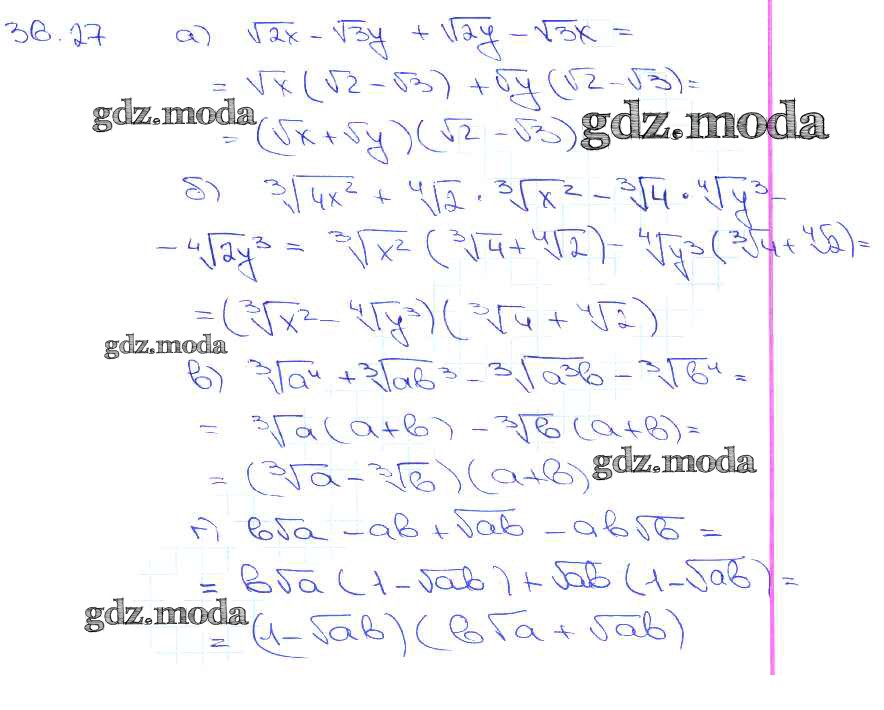 36.27 а) √2x - √3y + √2y - √3x =
= √x(√2 - √3) + √y(√2 - √3) =
gdz.moda
= (√x + √y)(√2 - √3) gdz.moda
б) ³√4x² + ⁴√2 · ³√x² - ³√4 · ⁴√y³ -
- ⁴√2y³ = ³√x² (³√4 + ⁴√2) - ⁴√y³ (³√4 + ⁴√2) =
= (³√x² - ⁴√y³)(³√4 + ⁴√2)
gdz.moda
в) ³√a⁴ + ³√ab³ - ³√a³b - ³√b⁴ =
= ³√a (a+b) - ³√b (a+b) =
= (³√a - ³√b)(a+b) gdz.moda
г) b√a - ab + √ab - ab√b =
= b√a (1 - √ab) + √ab (1 - √ab) =
gdz.moda
= (1 - √ab)(b√a + √ab)